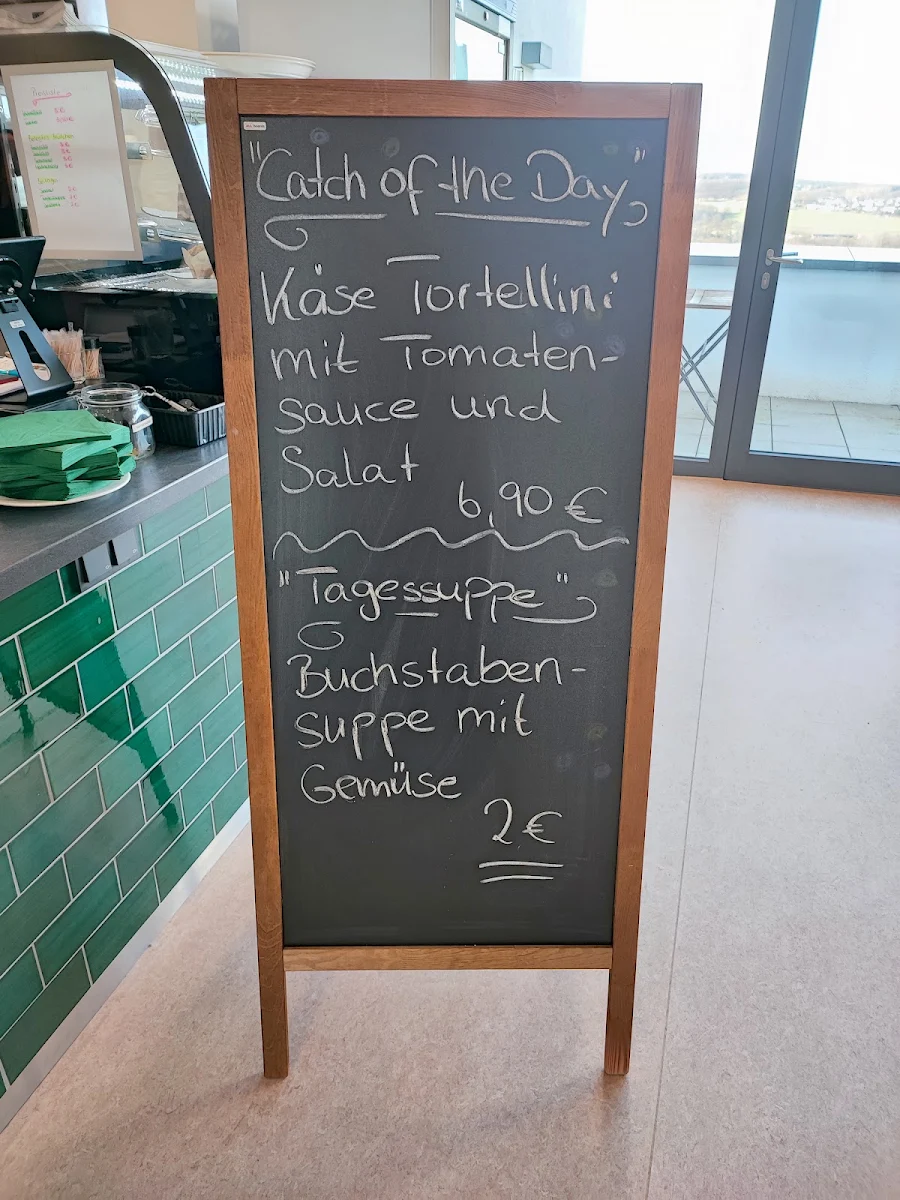 "Catch of the Day"
Käse Tortellini
mit Tomaten-
sauce und
Salat
6,90 €
"Tagessuppe"
Buchstaben-
suppe mit
Gemüse
2 €